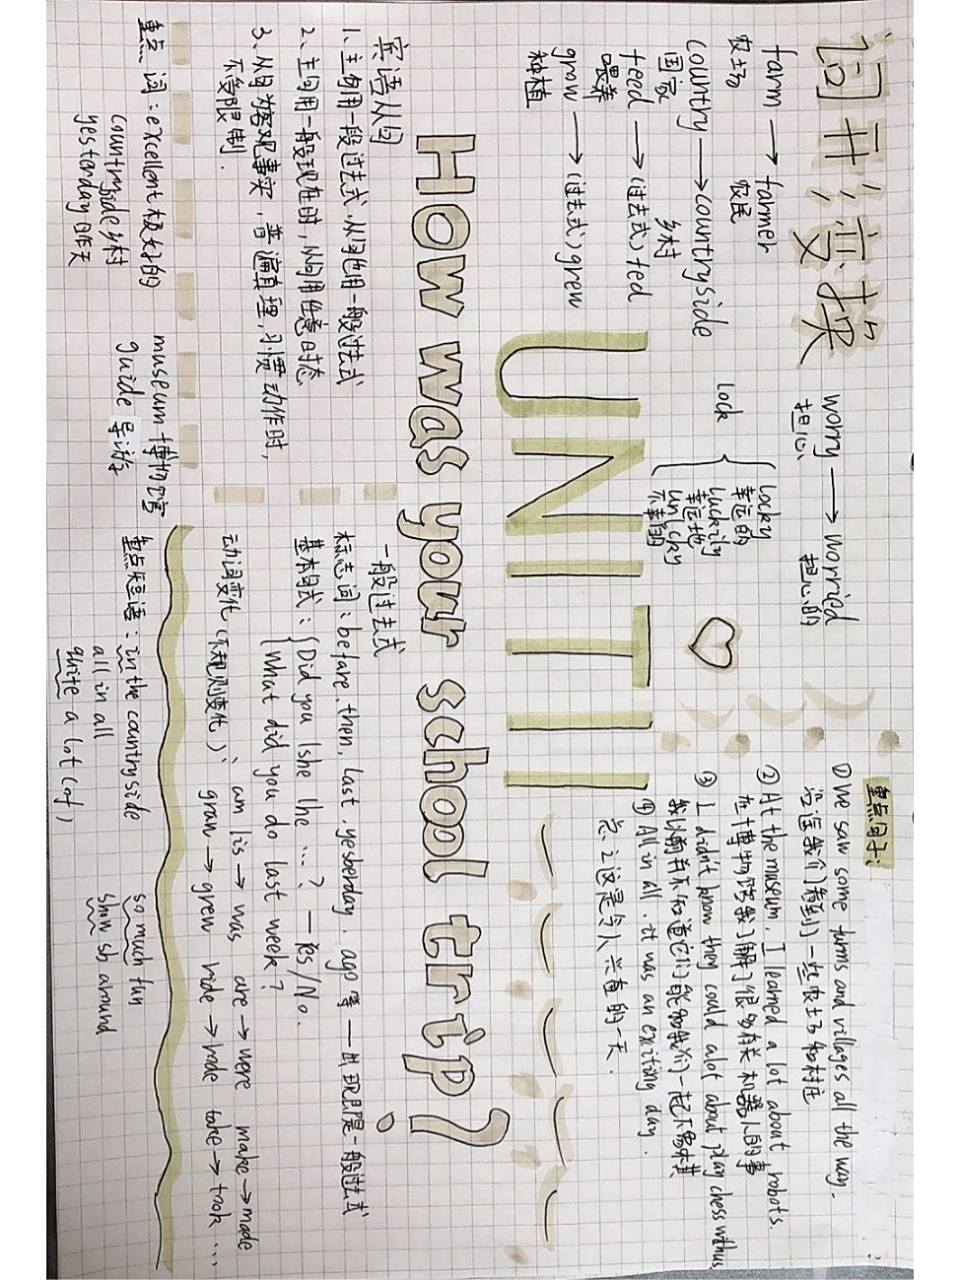 词形变换
farm → farmer
农场 农民
country → countryside
国家 乡村
feed → (过去式) fed
喂养
grow → (过去式) grew
种植
worry → worried
担心 担心的
lock
locky
幸运的
luckily
幸运地
unlucky
不幸的
重点句子:
①we saw some farms and villages all the way.
沿途我们看到一些农场和村庄
②At the museum, I learned a lot about robots.
在博物馆我了解了很多有关机器人的事
③I didn't know they could alot about play chess with us
我以前并不知道它们能和我们一起下象棋
④All in all, it was an exciting day.
总之这是令人兴奋的一天.
UNIT 11
How was your school trip?
宾语从句
1、主句用一般过去式,从句也用一般过去式
2、主句用一般现在时,从句用任意时态
3、从句为客观事实,普遍真理,习惯动作时,
不受限制.
一般过去式
标志词:before, then, last, yesterday, ago等 — 出现即是一般过去式
基本句式:{Did you /she /he ...? — Yes/No.
{What did you do last week?
动词变化(不规则变化): am/is → was are → were make → made
grow → grew ride → rode take → took ...
重点词:excellent极好的 museum博物馆
countryside乡村 guide导游
yesterday昨天
重点短语:in the countryside so much fun
all in all show sb around
quite a lot (of)